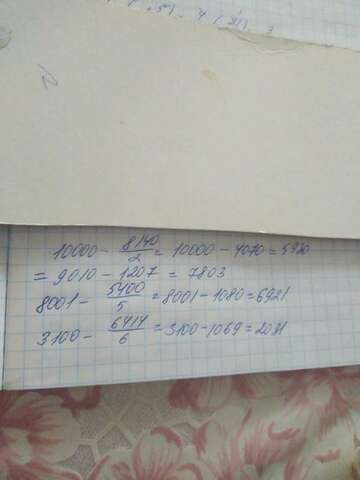 10000 - 8140/2 = 10000 - 4070 = 5930
= 9010 - 1207 = 7803
8001 - 5400/5 = 8001 - 1080 = 6921
3100 - 6414/6 = 3100 - 1069 = 2031